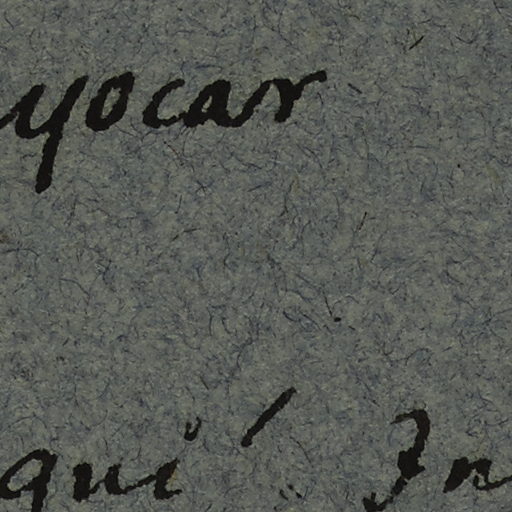 yocar
qui In